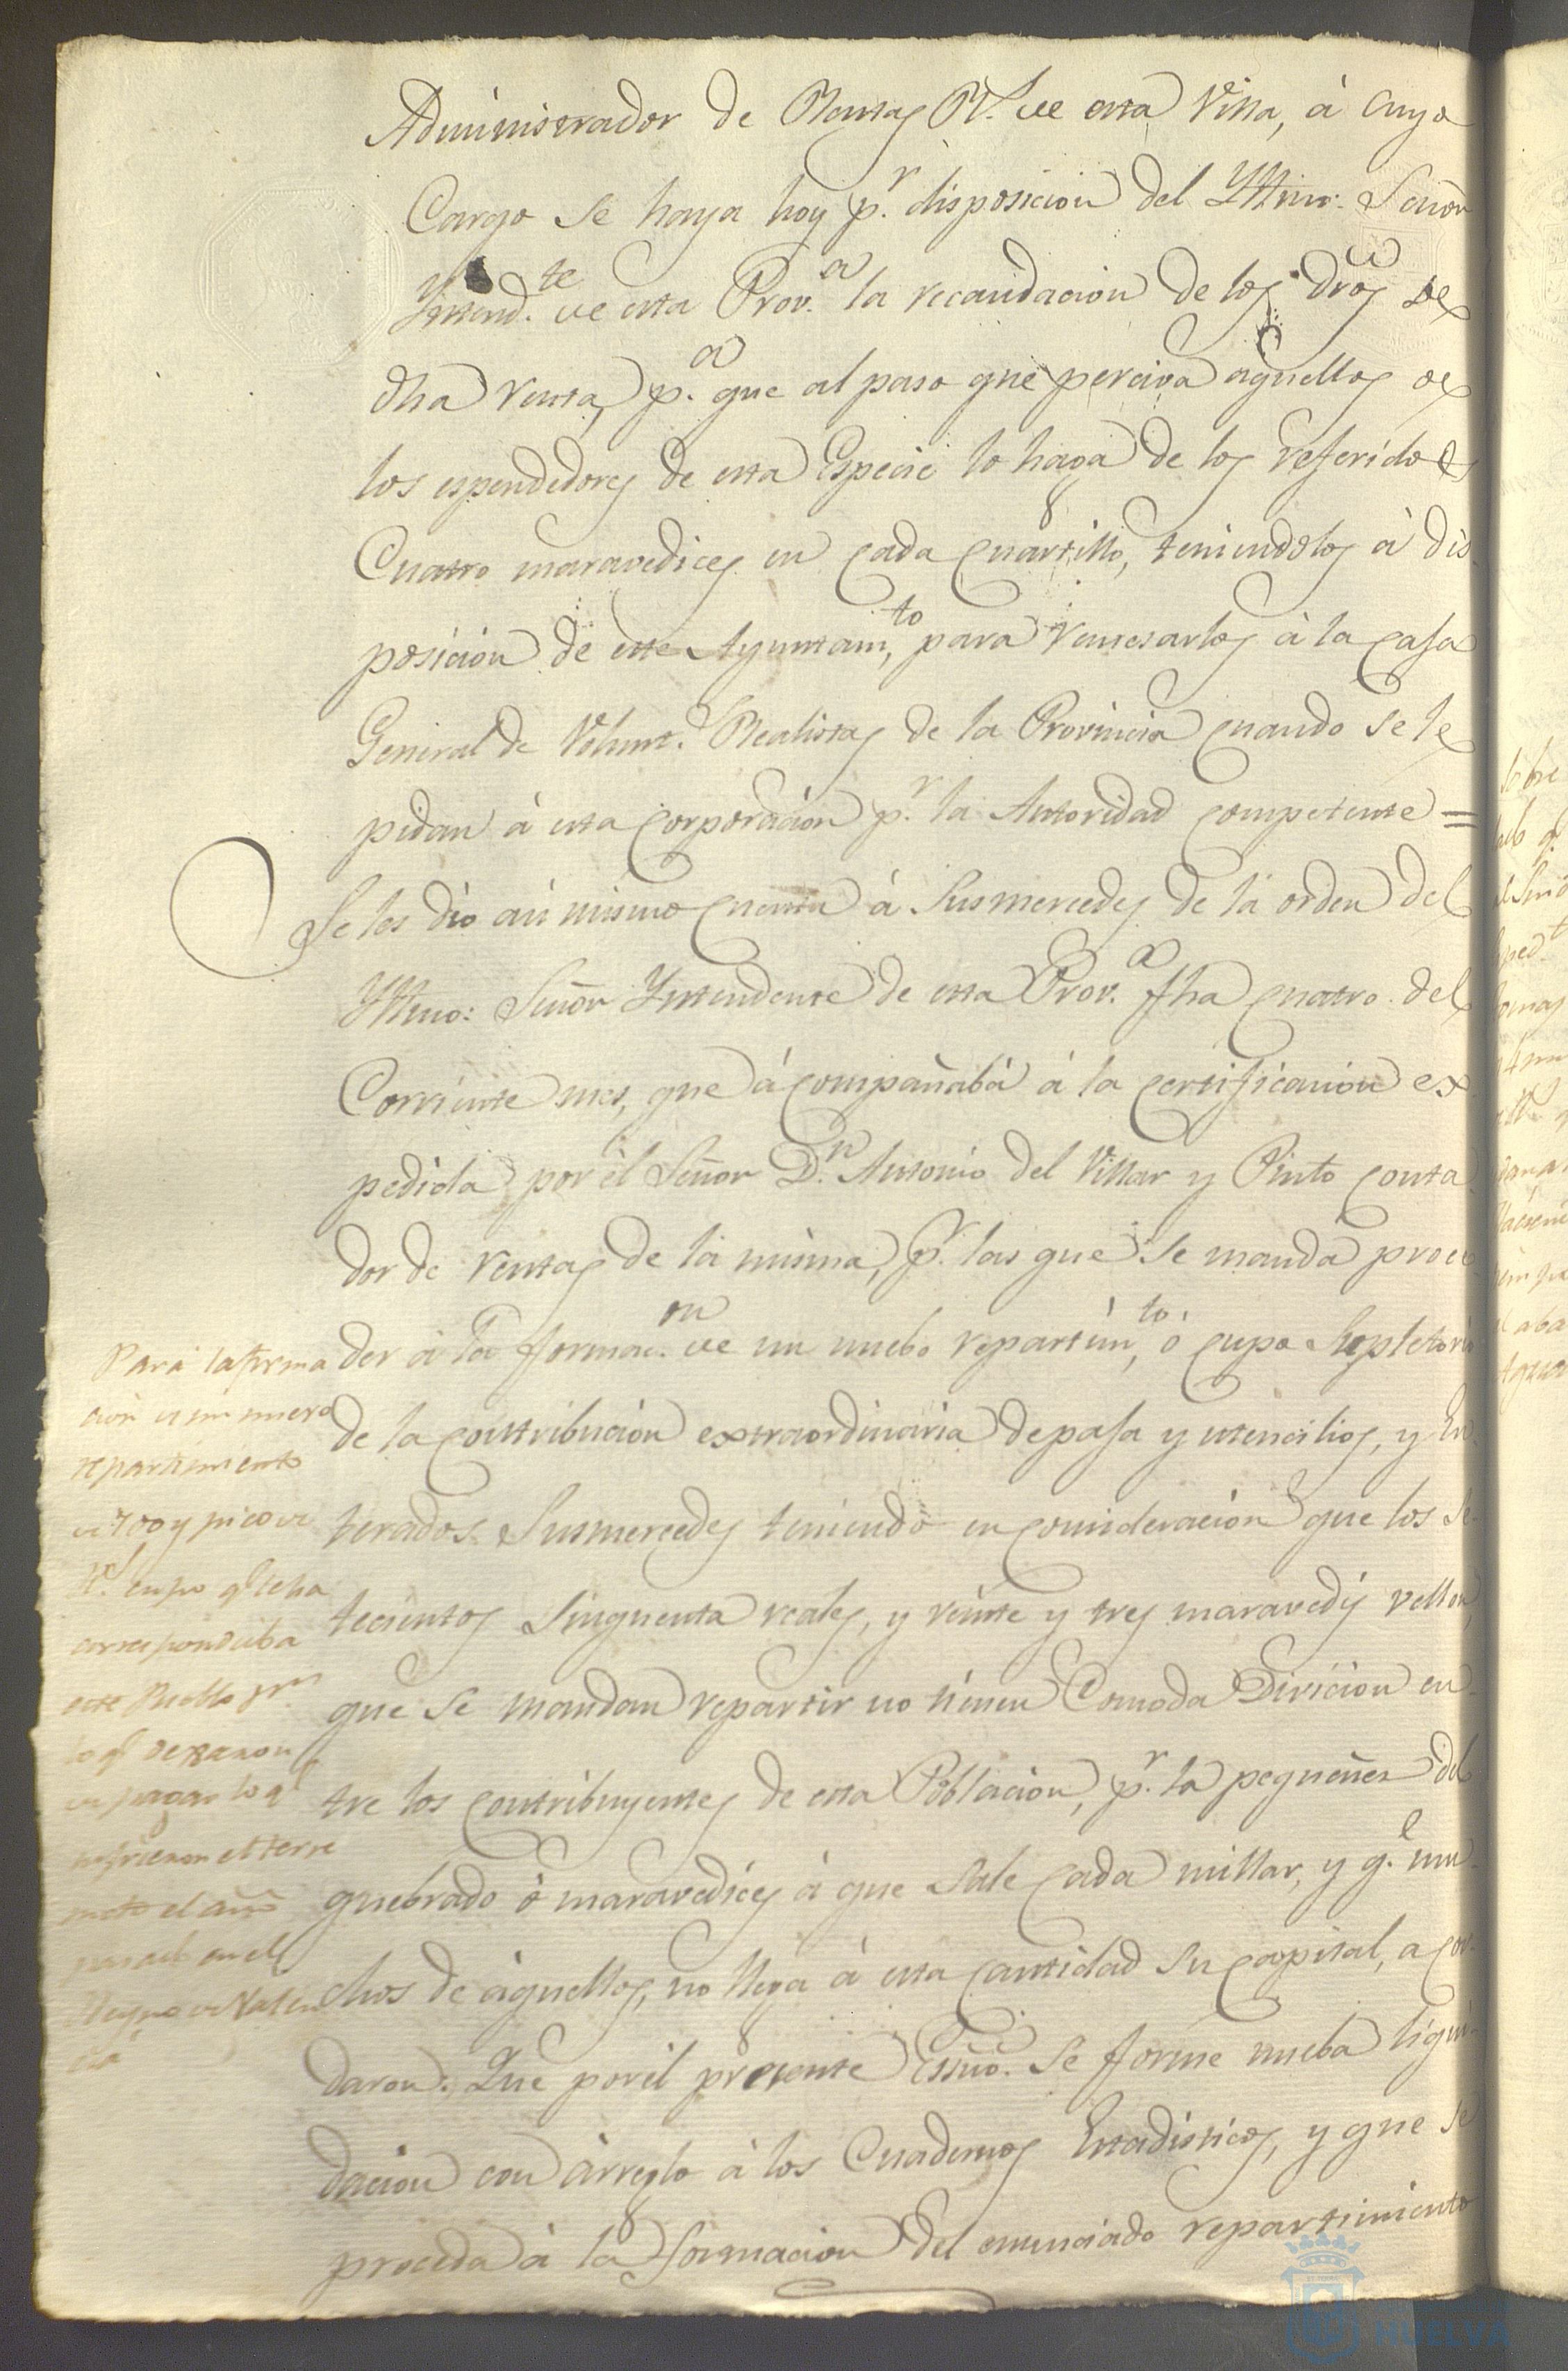 Administrador de Rentas Rs. de esta Villa, à cuyo
Cargo se haya hoy pr. disposicion del Yltmo: Señor
Yntendte. de esta Prova. la recaudacion de los dros de
dha renta, pa. que al paso que perciva aquellos de
los espendedores de esta Especie lo haga de los referidos
Cuatro maravedices en cada cuartillo, teniendolos à dis
posicion de este Ayuntamto, para remesarlos à la Casa
General de Volunts. Realistas de la Provincia cuando se le
pidan à esta corporacion pr. la Autoridad competente =
Se les dio asi mismo cuenta à Susmercedes de la orden del
Yltmo: Señor Yntendente de esta Prova. fha cuatro del
Corriente mes, que àcompañaba à la certificacion ex
pedida por el Señor Dn. Antonio del Villar y Pinto conta
dor de rentas de la misma, pr. las que se manda proce
der à la formacon. de un nuebo repartimto, ó cupo Supletorio
de la contribucion extraordinaria de paja y utencilios, y en
terados Susmercedes teniendo en concideracion que los se
tecientos Sinquenta reales, y veinte y tres maravedis vellon,
que se mandan repartir no tienen Comoda Divicion en
tre los contribuyentes de esta Poblacion, pr. la pequeñez del
quebrado ò maravedices à que sale cada millar, y qe. mu
chos de aquellos, no llega à esta cantidad su capital, acor
daron: Que por el presente Essno. se forme nueba liqui
dacion con àrreglo à los Cuadernos Estadisticos, y que se
proceda à la formacion del enunciado repartimiento
Para la forma
cion de un nuevo
repartimiento
de 700 y pico de
rs. cupo qe le ha
correspondido a
este Pueblo pr.
lo qe dexaron
de pagar los qe
sufrieron el terre
moto el año
pasado en el
Reyno de Valen
cia
HUELVA